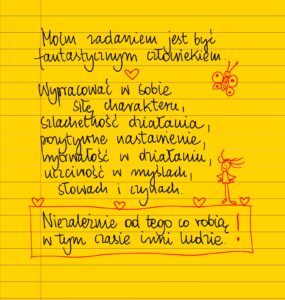 Moim zadaniem jest być
fantastycznym człowiekiem
Wypracować w sobie
siłę charakteru,
szlachetność działania,
pozytywne nastawienie,
wytrwałość w działaniu,
uczciwość w myślach,
słowach i czynach.
Niezależnie od tego co robią
w tym czasie inni ludzie!